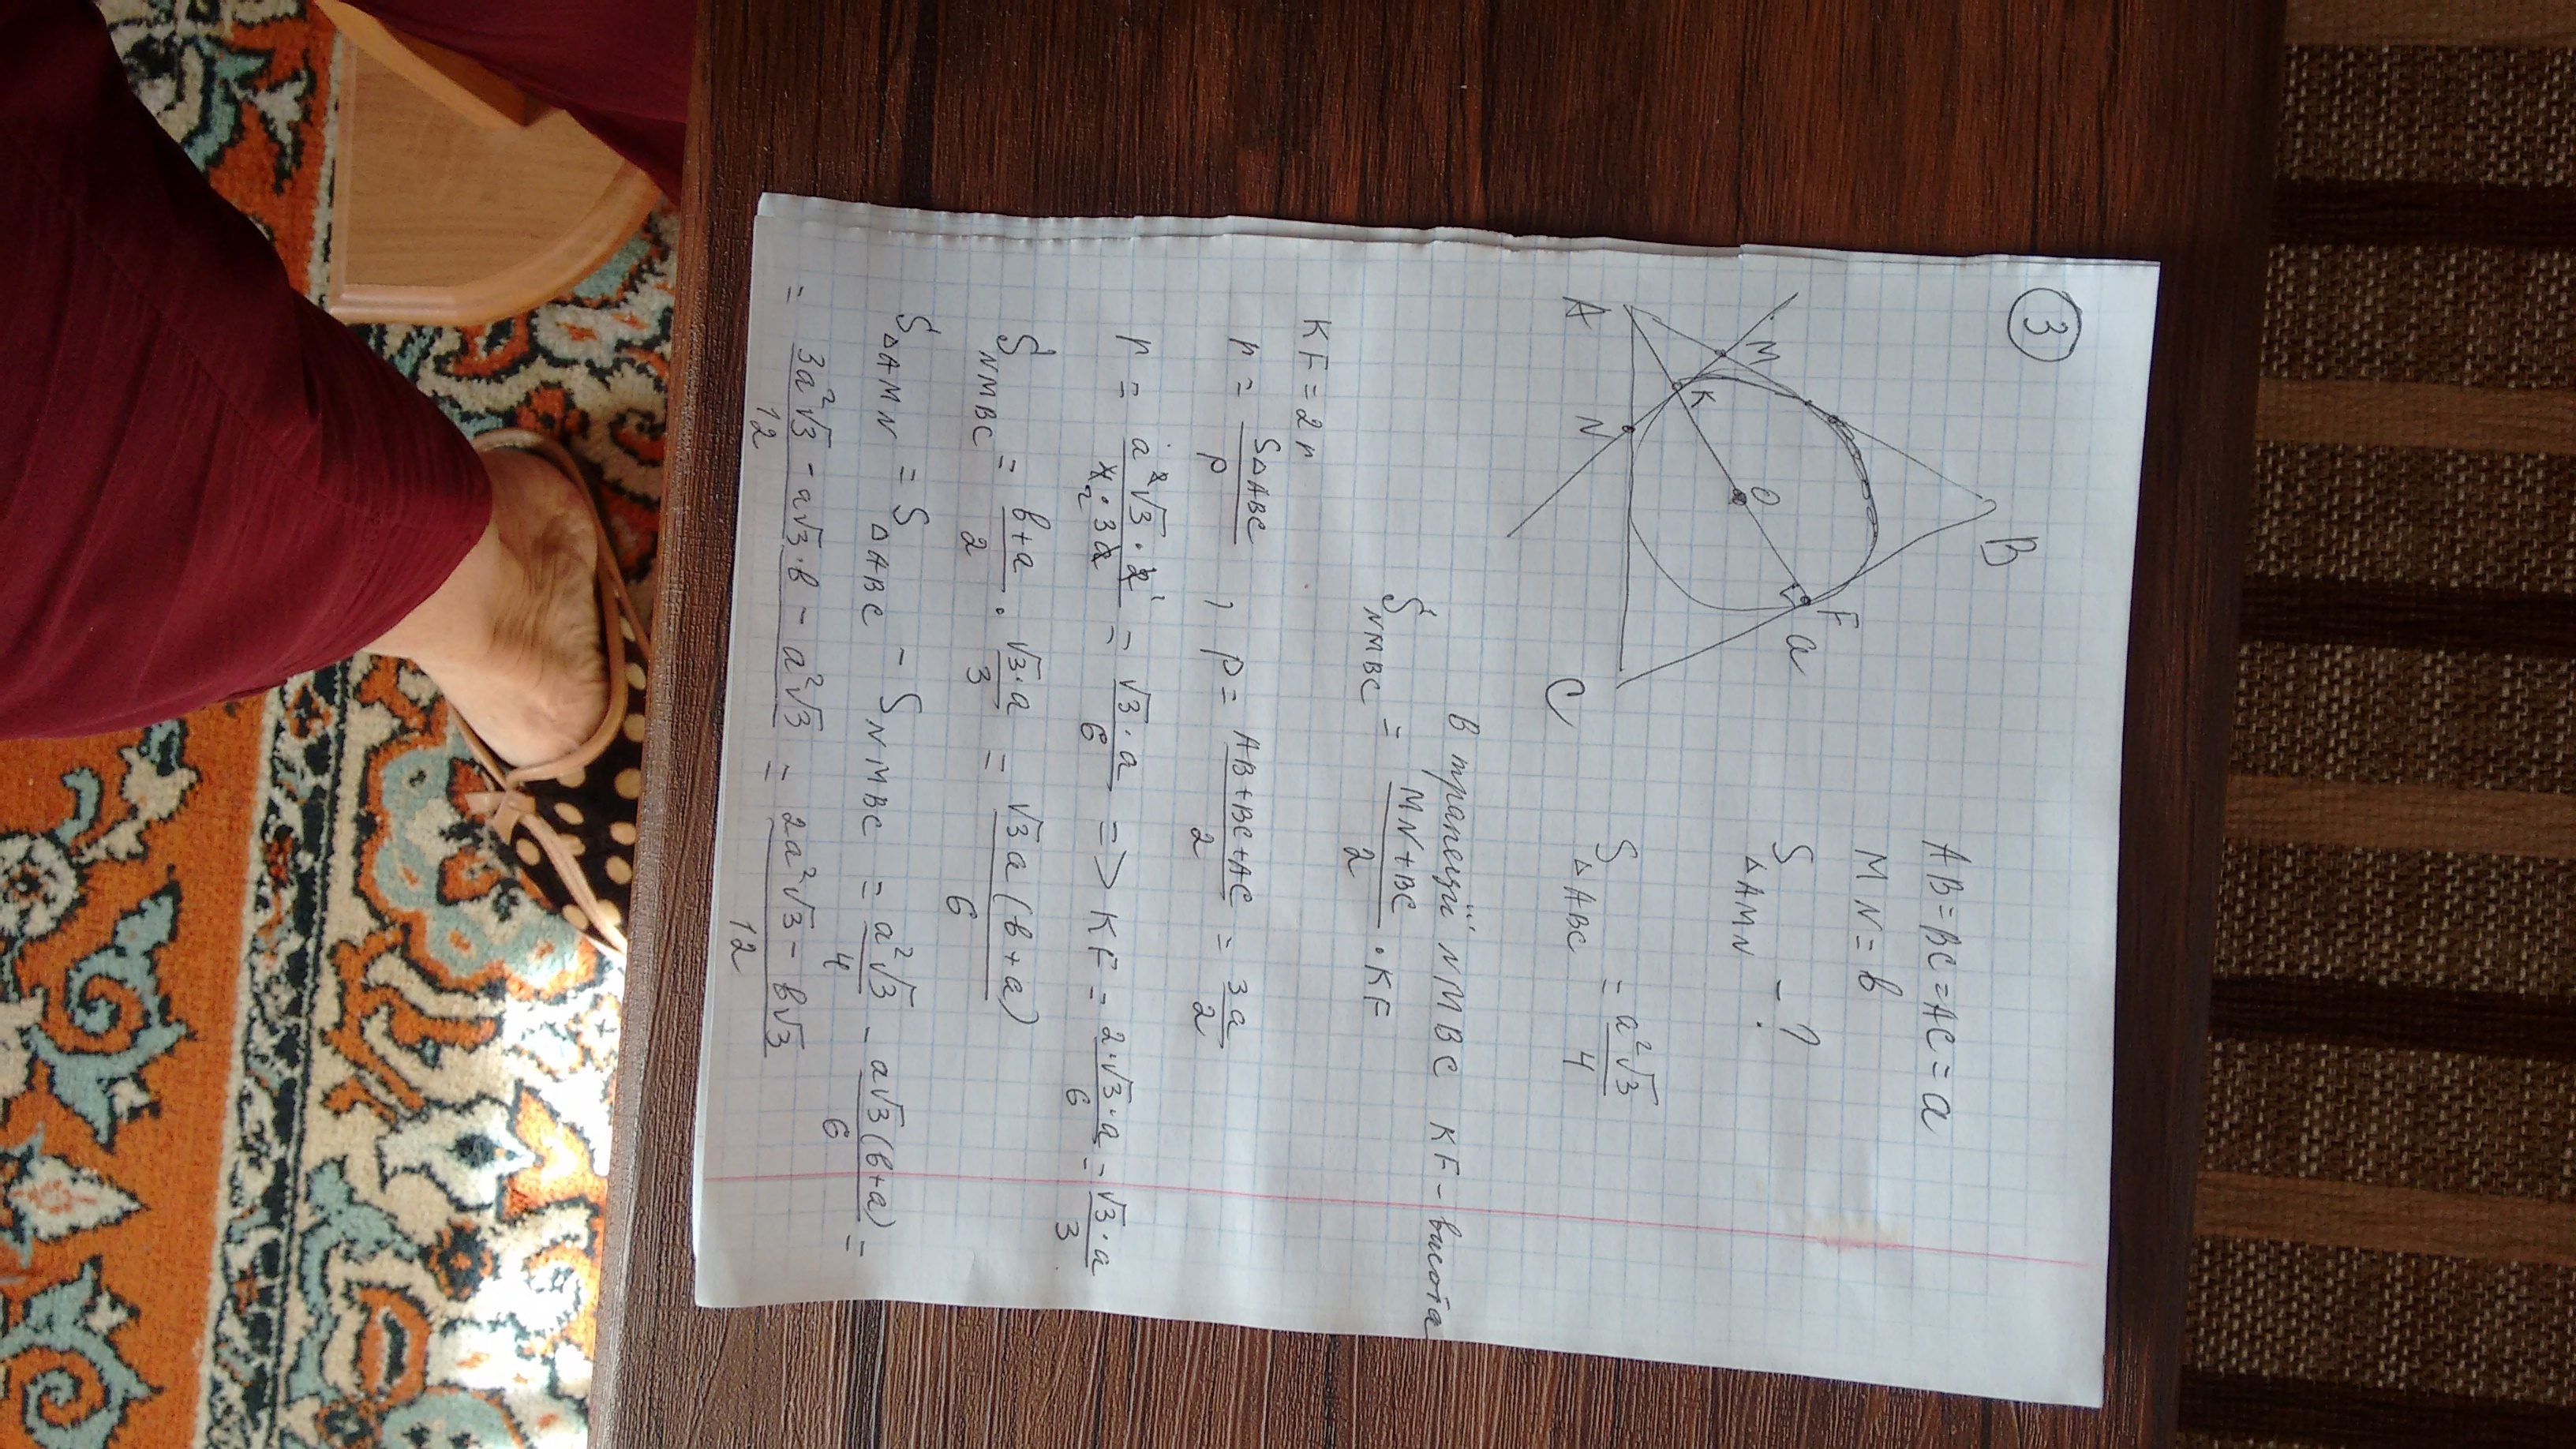 3
A
B
C
M
N
K
O
F
a
AB=BC=AC=a
MN=в
S△AMN - ?
S△ABC = a²√3/4
В трапеції NMBC KF - висота
S NMBC = (MN+BC)/2 · KF
KF=2r
r = S△ABC/p , p = (AB+BC+AC)/2 = 3a/2
r = a²√3·2/4·3a = √3·a/6 => KF = 2·√3·a/6 = √3·a/3
S NMBC = (в+a)/2 · √3·a/3 = √3a(в+a)/6
S△AMN = S△ABC - S NMBC = a²√3/4 - a√3(в+a)/6 =
= (3a²√3 - a√3·в - a²√3)/12 = (2a²√3 - в√3)/12